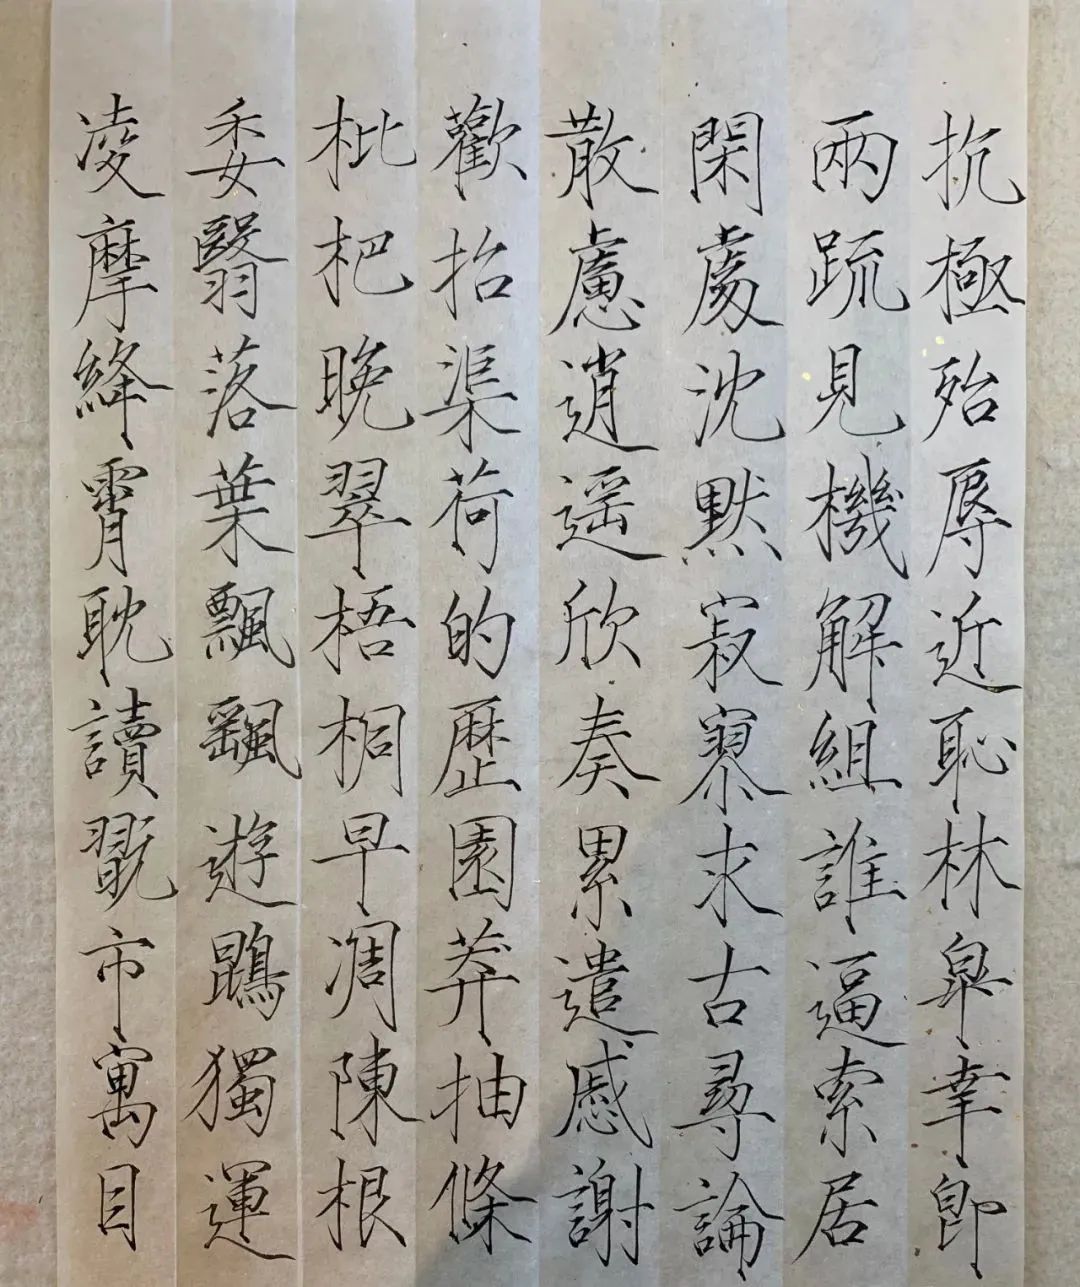 抗極殆辱近恥林皐幸即
兩疏見機解組誰逼索居
閑處沈默寂寥求古尋論
散慮逍遥欣奏累遣慼謝
歡招渠荷的歷園莽抽條
枇杷晚翠梧桐早凋陳根
委翳落葉飄飖遊鵾獨運
凌摩絳霄耽讀翫市寓目